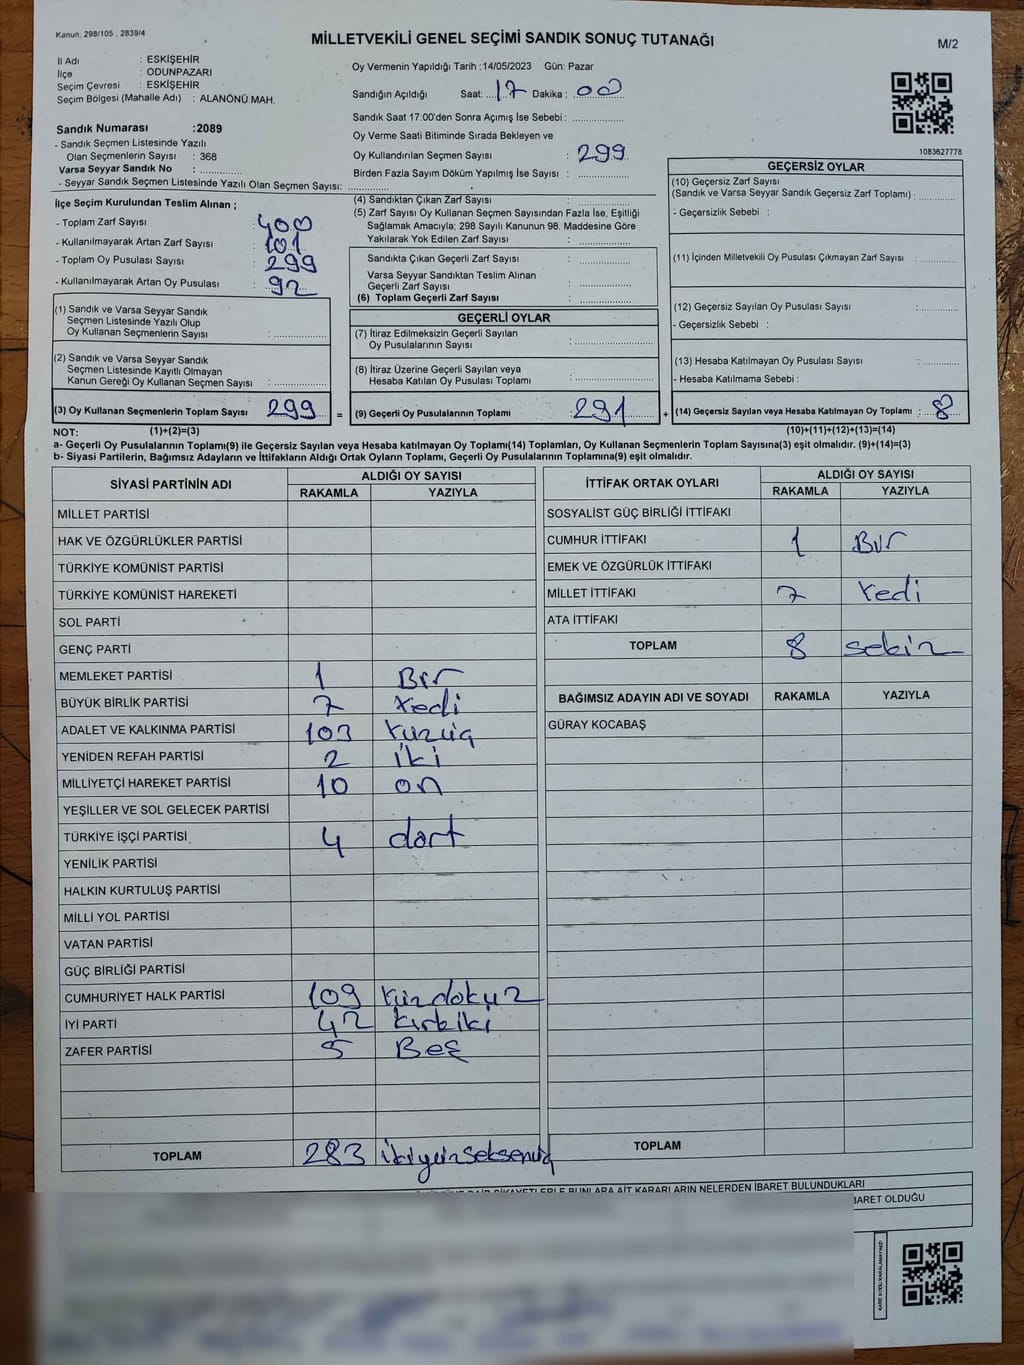 Kanun. 298/105 . 2839/4
MİLLETVEKİLİ GENEL SEÇİMİ SANDIK SONUÇ TUTANAĞI
M/2
İl Adı : ESKİŞEHİR
İlçe : ODUNPAZARI
Seçim Çevresi : ESKİŞEHİR
Seçim Bölgesi (Mahalle Adı) : ALANÖNÜ MAH.
Sandık Numarası :2089
- Sandık Seçmen Listesinde Yazılı
Olan Seçmenlerin Sayısı : 368
Varsa Seyyar Sandık No : ................
- Seyyar Sandık Seçmen Listesinde Yazılı Olan Seçmen Sayısı: ................
Oy Vermenin Yapıldığı Tarih :14/05/2023 Gün: Pazar
Sandığın Açıldığı Saat: 17 Dakika : 00
Sandık Saat 17:00'den Sonra Açımış İse Sebebi : ................
Oy Verme Saati Bitiminde Sırada Bekleyen ve
Oy Kullandırılan Seçmen Sayısı : 299
Birden Fazla Sayım Döküm Yapılmış İse Sayısı : ................
1083627778
İlçe Seçim Kurulundan Teslim Alınan ;
- Toplam Zarf Sayısı : 400
- Kullanılmayarak Artan Zarf Sayısı : 101
- Toplam Oy Pusulası Sayısı : 299
- Kullanılmayarak Artan Oy Pusulası : 92
(1) Sandık ve Varsa Seyyar Sandık
Seçmen Listesinde Yazılı Olup
Oy Kullanan Seçmenlerin Sayısı : ................
(2) Sandık ve Varsa Seyyar Sandık
Seçmen Listesinde Kayıtlı Olmayan
Kanun Gereği Oy Kullanan Seçmen Sayısı : ................
(3) Oy Kullanan Seçmenlerin Toplam Sayısı 299 =
(4) Sandıktan Çıkan Zarf Sayısı : ................
(5) Zarf Sayısı Oy Kullanan Seçmen Sayısından Fazla İse, Eşitliği
Sağlamak Amacıyla; 298 Sayılı Kanunun 98. Maddesine Göre
Yakılarak Yok Edilen Zarf Sayısı : ................
Sandıkta Çıkan Geçerli Zarf Sayısı : ................
Varsa Seyyar Sandıktan Teslim Alınan
Geçerli Zarf Sayısı : ................
(6) Toplam Geçerli Zarf Sayısı : ................
GEÇERLİ OYLAR
(7) İtiraz Edilmeksizin Geçerli Sayılan
Oy Pusulalarının Sayısı : ................
(8) İtiraz Üzerine Geçerli Sayılan veya
Hesaba Katılan Oy Pusulası Toplamı : ................
(9) Geçerli Oy Pusulalarının Toplamı : 291 +
GEÇERSİZ OYLAR
(10) Geçersiz Zarf Sayısı
(Sandık ve Varsa Seyyar Sandık Geçersiz Zarf Toplamı) : ................
- Geçersizlik Sebebi :
(11) İçinden Milletvekili Oy Pusulası Çıkmayan Zarf Sayısı : ................
(12) Geçersiz Sayılan Oy Pusulası Sayısı : ................
- Geçersizlik Sebebi :
(13) Hesaba Katılmayan Oy Pusulası Sayısı : ................
- Hesaba Katılmama Sebebi :
(14) Geçersiz Sayılan veya Hesaba Katılmayan Oy Toplamı : 8
NOT: (1)+(2)=(3) (10)+(11)+(12)+(13)=(14)
a- Geçerli Oy Pusulalarının Toplamı(9) ile Geçersiz Sayılan veya Hesaba katılmayan Oy Toplamı(14) Toplamları, Oy Kullanan Seçmenlerin Toplam Sayısına(3) eşit olmalıdır. (9)+(14)=(3)
b- Siyasi Partilerin, Bağımsız Adayların ve İttifakların Aldığı Ortak Oyların Toplamı, Geçerli Oy Pusulalarının Toplamına(9) eşit olmalıdır.
SİYASİ PARTİNİN ADI ALDIĞI OY SAYISI
RAKAMLA YAZIYLA
MİLLET PARTİSİ
HAK VE ÖZGÜRLÜKLER PARTİSİ
TÜRKİYE KOMÜNİST PARTİSİ
TÜRKİYE KOMÜNİST HAREKETİ
SOL PARTİ
GENÇ PARTİ
MEMLEKET PARTİSİ 1 Bir
BÜYÜK BİRLİK PARTİSİ 7 Yedi
ADALET VE KALKINMA PARTİSİ 103 Yüzüç
YENİDEN REFAH PARTİSİ 2 iki
MİLLİYETÇİ HAREKET PARTİSİ 10 on
YEŞİLLER VE SOL GELECEK PARTİSİ
TÜRKİYE İŞÇİ PARTİSİ 4 dört
YENİLİK PARTİSİ
HALKIN KURTULUŞ PARTİSİ
MİLLİ YOL PARTİSİ
VATAN PARTİSİ
GÜÇ BİRLİĞİ PARTİSİ
CUMHURİYET HALK PARTİSİ 109 Yüzdokuz
İYİ PARTİ 42 kırkiki
ZAFER PARTİSİ 5 Beş
TOPLAM 283 ikiyüzseksenüç
İTTİFAK ORTAK OYLARI ALDIĞI OY SAYISI
RAKAMLA YAZIYLA
SOSYALİST GÜÇ BİRLİĞİ İTTİFAKI
CUMHUR İTTİFAKI 1 Bir
EMEK VE ÖZGÜRLÜK İTTİFAKI
MİLLET İTTİFAKI 7 Yedi
ATA İTTİFAKI
TOPLAM 8 sekiz
BAĞIMSIZ ADAYIN ADI VE SOYADI RAKAMLA YAZIYLA
GÜRAY KOCABAŞ
TOPLAM
ŞİKAYETLERLE BUNLARA AİT KARARLARIN NELERDEN İBARET BULUNDUKLARI
BARET OLDUĞU
KARE KODU KARALAMAYINIZ!